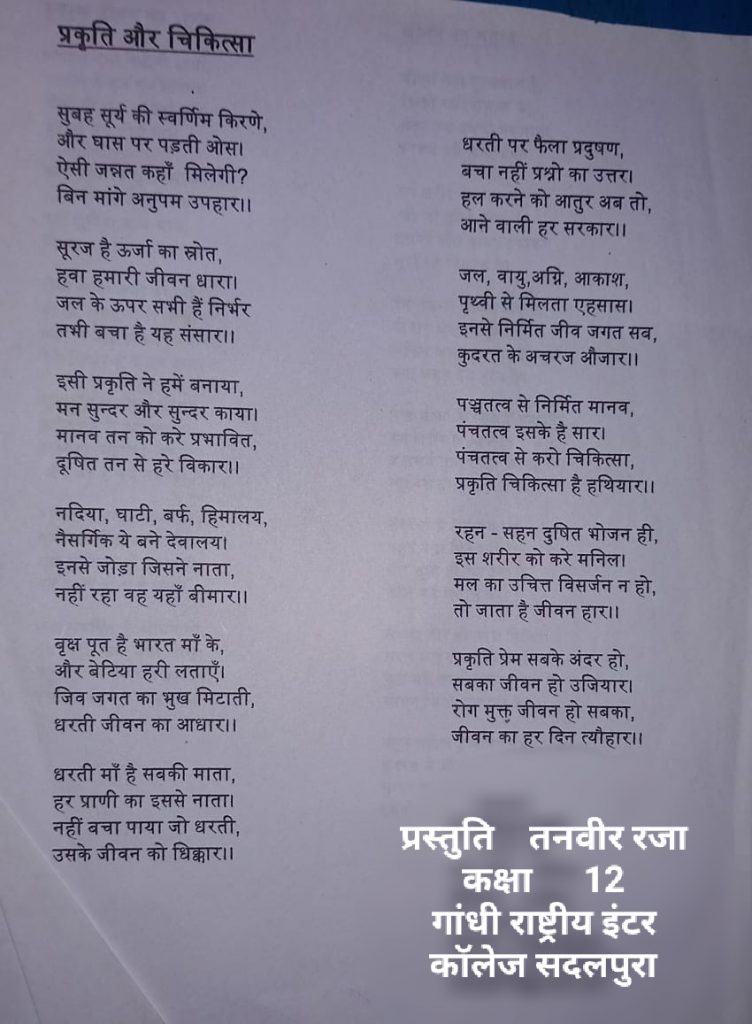 प्रकृति और चिकित्सा
सुबह सूर्य की स्वर्णिम किरणे,
और घास पर पड़ती ओस।
ऐसी जन्नत कहाँ मिलेगी?
बिन मांगे अनुपम उपहार।।
सूरज है ऊर्जा का स्रोत,
हवा हमारी जीवन धारा।
जल के ऊपर सभी हैं निर्भर
तभी बचा है यह संसार।।
इसी प्रकृति ने हमें बनाया,
मन सुन्दर और सुन्दर काया।
मानव तन को करे प्रभावित,
दूषित तन से हरे विकार।।
नदिया, घाटी, बर्फ, हिमालय,
नैसर्गिक ये बने देवालय।
इनसे जोड़ा जिसने नाता,
नहीं रहा वह यहाँ बीमार।।
वृक्ष पूत है भारत माँ के,
और बेटिया हरी लताएँ।
जिव जगत का भुख मिटाती,
धरती जीवन का आधार।।
धरती माँ है सबकी माता,
हर प्राणी का इससे नाता।
नहीं बचा पाया जो धरती,
उसके जीवन को धिक्कार।।
धरती पर फैला प्रदुषण,
बचा नहीं प्रश्नो का उत्तर।
हल करने को आतुर अब तो,
आने वाली हर सरकार।।
जल, वायु,अग्नि, आकाश,
पृथ्वी से मिलता एहसास।
इनसे निर्मित जीव जगत सब,
कुदरत के अचरज औजार।।
पञ्चतत्व से निर्मित मानव,
पंचतत्व इसके है सार।
पंचतत्व से करो चिकित्सा,
प्रकृति चिकित्सा है हथियार।।
रहन - सहन दुषित भोजन ही,
इस शरीर को करे मनिल।
मल का उचित्त विसर्जन न हो,
तो जाता है जीवन हार।।
प्रकृति प्रेम सबके अंदर हो,
सबका जीवन हो उजियार।
रोग मुक्त जीवन हो सबका,
जीवन का हर दिन त्यौहार।।
प्रस्तुति तनवीर रजा
कक्षा 12
गांधी राष्ट्रीय इंटर
कॉलेज सदलपुरा